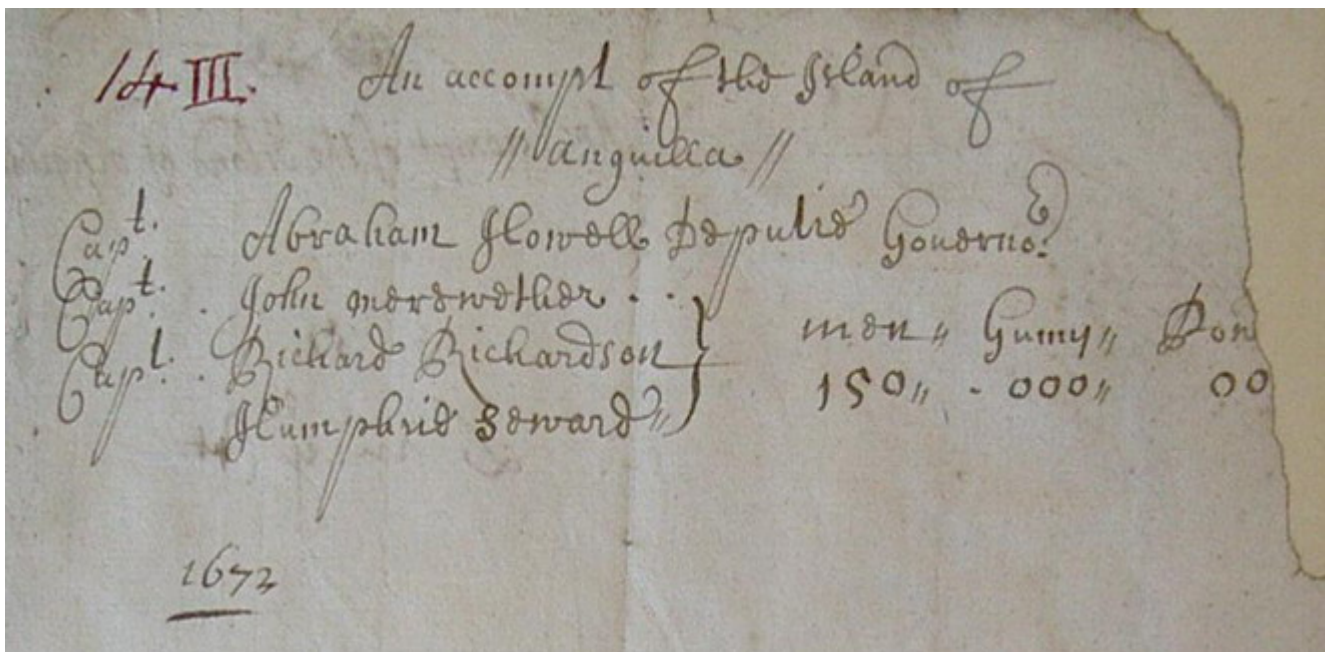 14 III. An accompt of the Island of
// Anguilla //
Capt. Abraham Howell Deputie Governor.
Capt. John merewether . .
Capt. Richard Richardson
Humphrie Seward //
men // Gumy // Pow
150 // - 000 // 00
1672